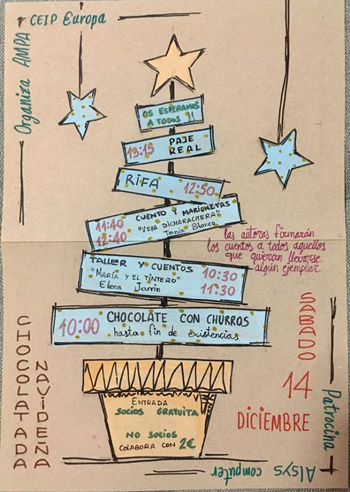 Organiza AMPA
CEIP Europa
OS ESPERAMOS
A TODOS !!
13:15 PAJE
REAL
RIFA 12:50
11:40 CUENTO Y MARIONETAS
12:40 "VEPA DICHARACHERA"
Tania Blanco
las autoras firmarán
los cuentos a todos aquellos
que quieran llevarse
algún ejemplar
TALLER Y CUENTOS 10:30
"MARÍA Y EL TINTERO" 11:30
Elena Jarrin
10:00 CHOCOLATE CON CHURROS
hasta fin de existencias
SABADO
14
DICIEMBRE
CHOCOLATADA
NAVIDEÑA
ENTRADA
SOCIOS GRATUITA
NO SOCIOS
COLABORA CON 2€
Patrocina
Alsys computer